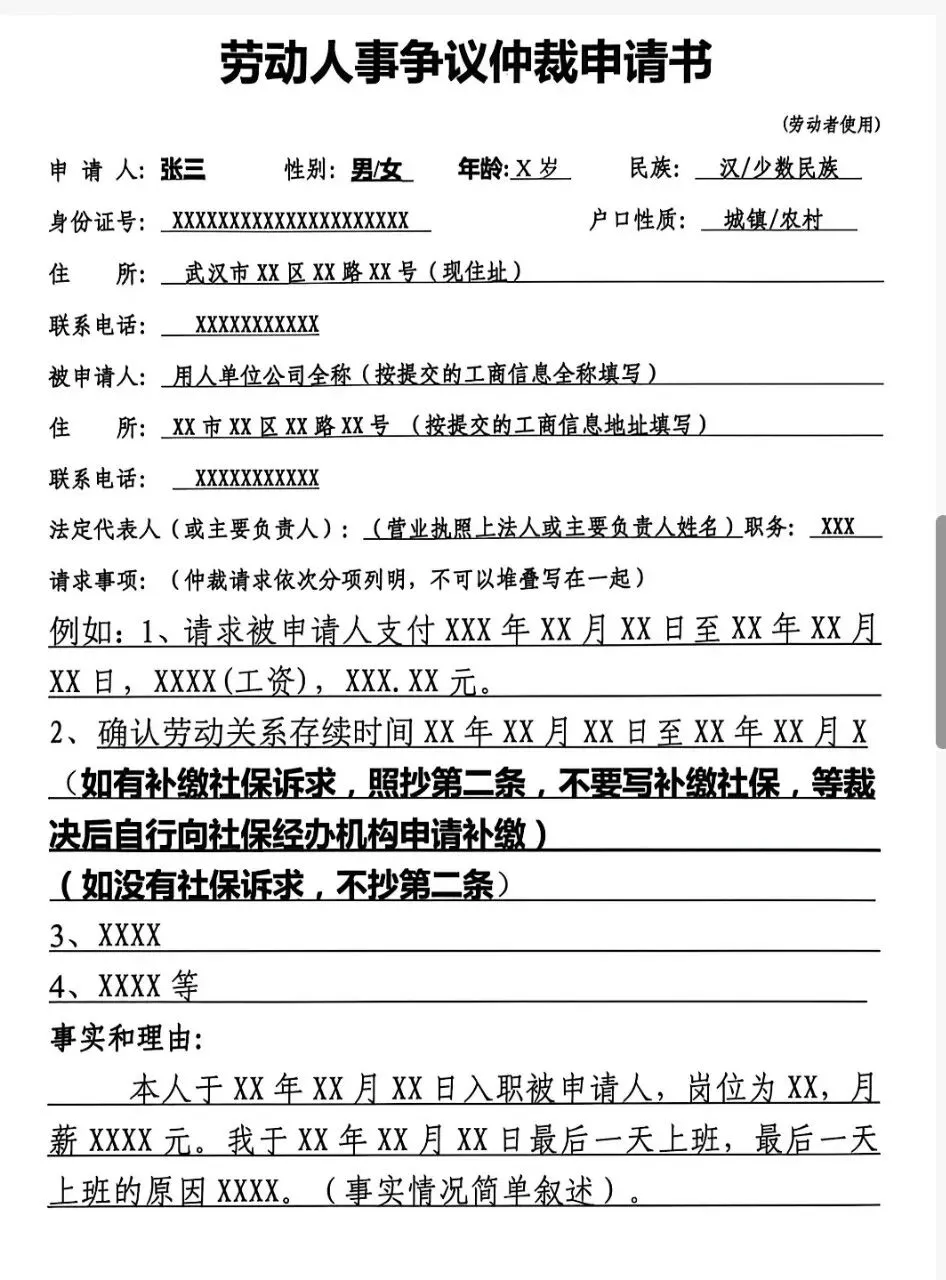 劳动人事争议仲裁申请书
(劳动者使用)
申 请 人: 张三 性别: 男/女 年龄: X 岁 民族: 汉/少数民族
身份证号: XXXXXXXXXXXXXXXXXXXXX 户口性质: 城镇/农村
住 所: 武汉市 XX 区 XX 路 XX 号（现住址）
联系电话: XXXXXXXXXXX
被申请人: 用人单位公司全称（按提交的工商信息全称填写）
住 所: XX 市 XX 区 XX 路 XX 号 （按提交的工商信息地址填写）
联系电话: XXXXXXXXXXX
法定代表人（或主要负责人）: （营业执照上法人或主要负责人姓名）职务: XXX
请求事项: （仲裁请求依次分项列明，不可以堆叠写在一起）
例如: 1、请求被申请人支付 XXX 年 XX 月 XX 日至 XX 年 XX 月
XX 日，XXXX(工资)，XXX.XX 元。
2、确认劳动关系存续时间 XX 年 XX 月 XX 日至 XX 年 XX 月 X
（如有补缴社保诉求，照抄第二条，不要写补缴社保，等裁
决后自行向社保经办机构申请补缴）
（如没有社保诉求，不抄第二条）
3、XXXX
4、XXXX 等
事实和理由:
本人于 XX 年 XX 月 XX 日入职被申请人，岗位为 XX，月
薪 XXXX 元。我于 XX 年 XX 月 XX 日最后一天上班，最后一天
上班的原因 XXXX。（事实情况简单叙述）。